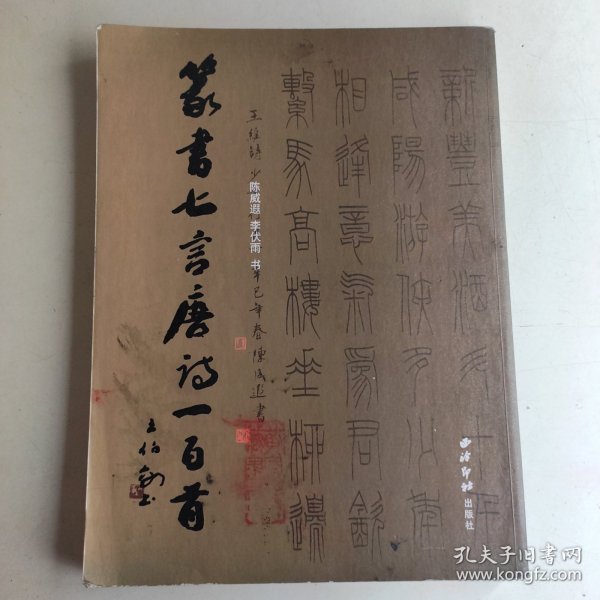 篆書七言唐诗一百首
王伯敏书
新豐美酒斗十千
咸陽游俠多少年
相逢意氣爲君飲
繫馬高樓垂柳邊
王維詩少
巳年春陳威遐書
陈威遐 李伏雨 书
西泠印社
出版社
孔夫子旧书网
www.kongfz.com